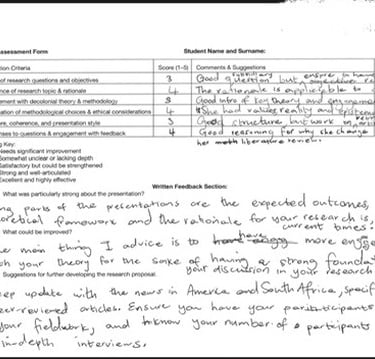 ssessment Form Student Name and Surname:
ion Criteria Score (1-5) Comments & Suggestions
of research questions and objectives 3 Good question but ensure to have
subsidiary
nce of research topic & rationale 4 The rationale is applicable to
ement with decolonial theory & methodology 3 Good intro of key theory and engagement
ation of methodological choices & ethical considerations 4 She had values reality and
ure, coherence, and presentation style 3 Good structure but work on
nses to questions & engagement with feedback 4 Good reasoning for why she change
her meth literature review.
g Key:
Needs significant improvement
Somewhat unclear or lacking depth
Satisfactory but could be strengthened
Strong and well-articulated
Excellent and highly effective
Written Feedback Section:
What was particularly strong about the presentation?
ng parts of the presentations are the expected outcomes,
oretical framework and the rationale for your research is,
current times.
What could be improved?
e main thing I advice is to have more engage
h your theory for the sake of having a strong foundat
your discussion in your research
Suggestions for further developing the research proposal.
eep update with the news in America and South Africa, specif
eer-reviewed articles. Ensure you have your participants
your fieldwork, and to know your number of participants
in-depth interviews.